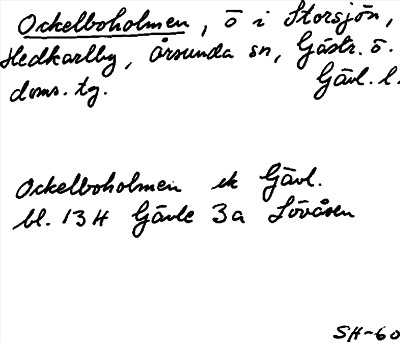 Ockelboholmen, ö i Storsjön,
Hedkarlby, Årsunda sn, Gästr. ö.
doms. tg. Gävl. l.
Ockelboholmen ek Gävl.
bl. 13 H Gävle 3a Lövåsen
SH-60